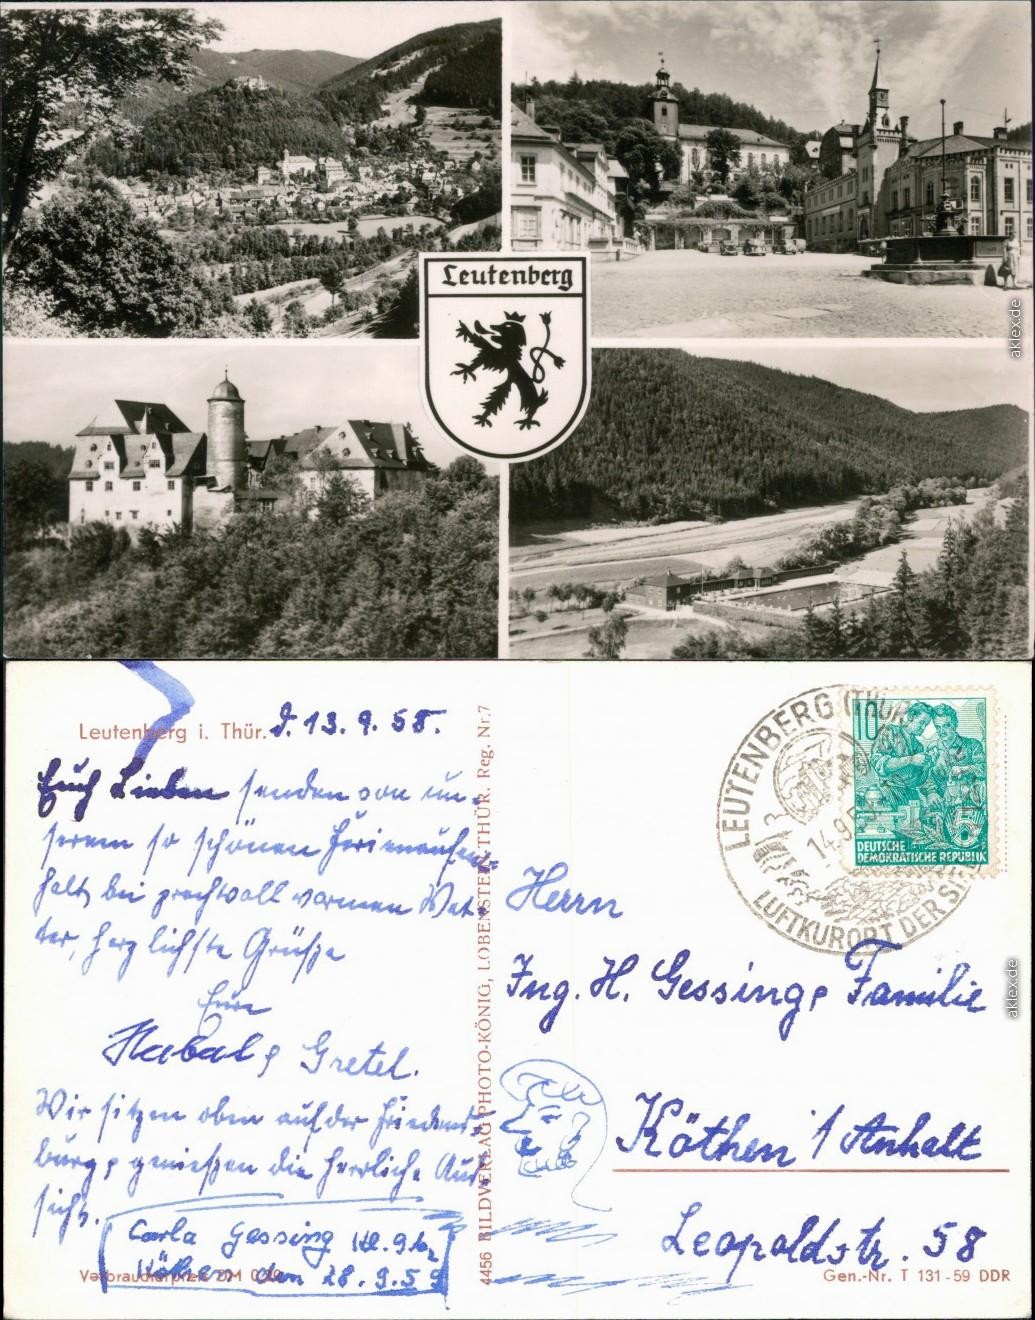 Leutenberg
aklex.de
Leutenberg i. Thür. d. 13. 9. 58.
Euch Lieben senden von un-
serem so schönen Ferienaufent-
halt, bei prachtvoll warmen Wet-
ter, herzlichste Grüße
Eure
Gretel.
Wir sitzen oben auf der Friedens-
burg, genießen die herrliche Aus-
sicht.
Carla Gessing Kl. 9b
Köthen den 28. 9. 59
Verbraucherpreis DM
4456 BILDVERLAG PHOTO-KÖNIG, LOBENSTEIN THÜR. Reg. Nr. 7
LEUTENBERG (THÜR
14.9.5
LUFTKURORT DER SIE
10
DEUTSCHE
DEMOKRATISCHE REPUBLIK
Herrn
Ing. H. Gessing, Familie
Köthen / Anhalt
Leopoldstr. 58
Gen.-Nr. T 131-59 DDR
aklex.de